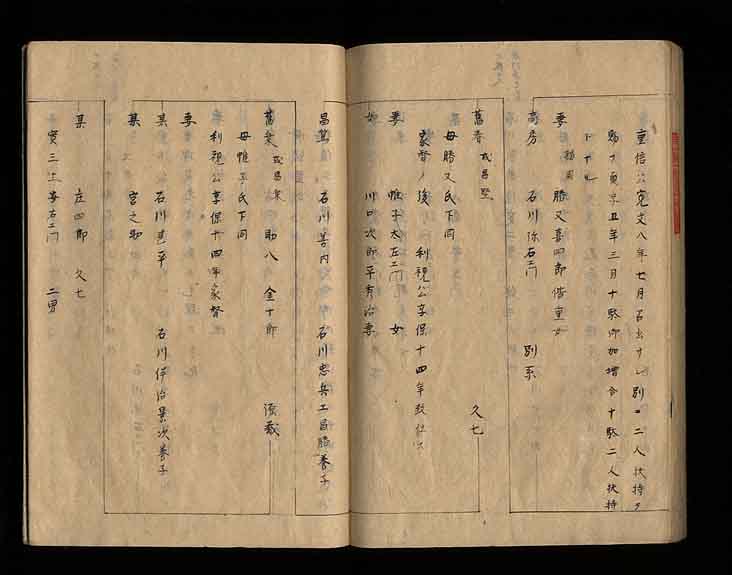 重信公寛文八年七月召出サレ別ニ二人扶持ヲ
賜フ貞享五年三月十駄御加増合十駄二人扶持
下サル
妻 勝又喜四郎偕重女
高房 石川弥右エ門 別系
旧春 或昌堅 久七
母勝又氏下同
家督ノ後 利視公享保十四年致仕ス
妻 帷子太左エ門 女
女 川口次郎平秀治妻
昌篤 石川善内 石川忠兵エ昌勝養子
旧業 助八 金十郎 須蔵
母帷子氏下同
利視公享保十四年家督
妻
某 石川喜平 石川伊治景次養子
某 宮之助
某 庄四郎 久七
実三上 右エ門 二男